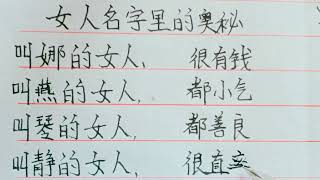 女人名字里的奥秘
叫娜的女人, 很有钱
叫燕的女人, 都小气
叫琴的女人, 都善良
叫静的女人, 很直